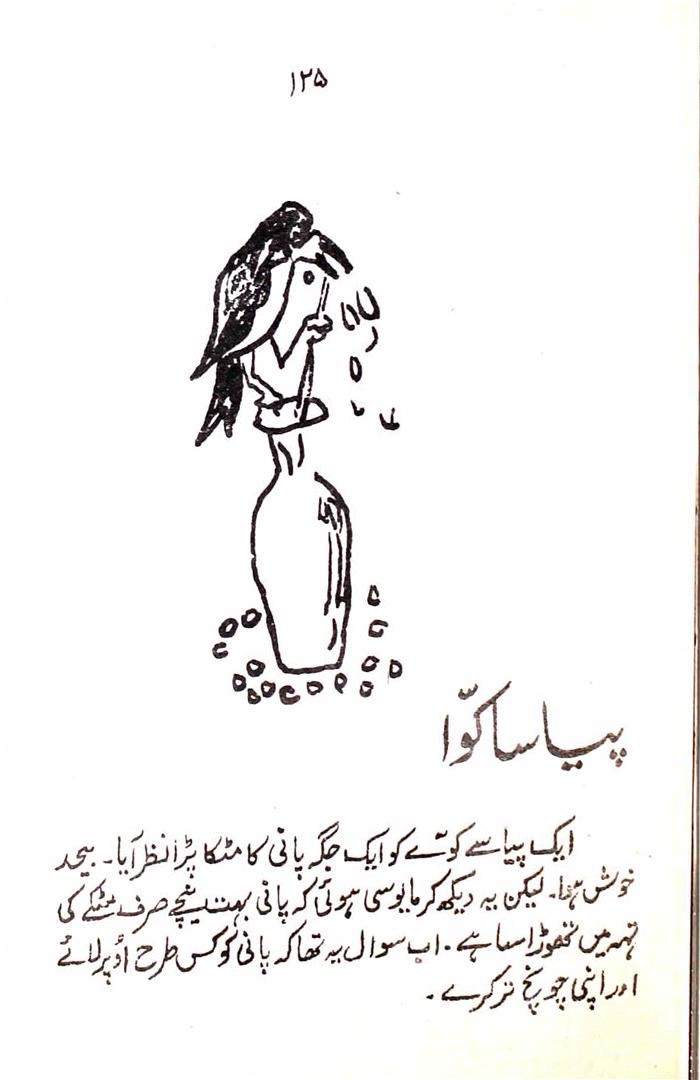 ۱۲۵
پیاسا کوّا
ایک پیاسے کوّے کو ایک جگہ پانی کا مٹکا پڑا نظر آیا۔ بیحد
خوش ہوا۔ لیکن یہ دیکھ کر مایوسی ہوئی کہ پانی بہت نیچے صرف مٹکے کی
تہہ میں تھوڑا سا ہے۔ اب سوال یہ تھا کہ پانی کو کس طرح اُوپر لائے
اور اپنی چونچ تر کرے۔